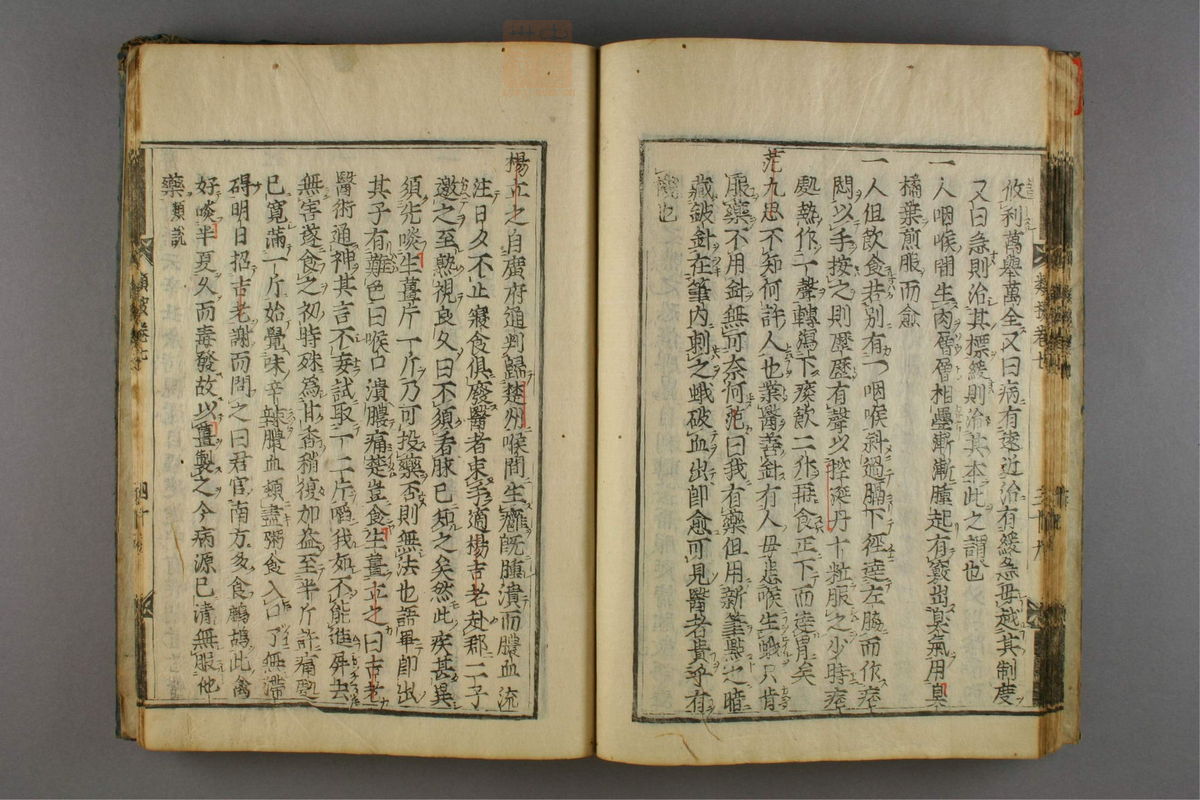 攸利萬擧萬全又曰病有遠近治有緩急毋越其制度
又曰急則治其標緩則治其本此之謂也
一人咽喉間生肉層層相疊漸漸腫起有竅出臭氣用臭
橘葉煎服而愈
一人但飲食若別有一咽喉斜過膈下徑達左脇而作痞
悶以手按之則歷歷有聲以控涎丹十粒服之少時痞
處熱作一聲轉瀉下痰飲二升再食正下而達胃矣
范九思不知何許人也業醫善針有人毋患喉生蛾只肯
服藥不用針無可奈何范曰我有藥但用新筆點之暗
藏鈹針在筆內刺之蛾破血出即愈可見醫者貴乎有
機也
楊立之自廣府通判歸楚州喉間生癰既腫潰而膿血流
注日夕不止寢食俱廢醫者束手適楊吉老赴郡二子
邀之至熟視良久曰不須看脉已知之矣然此疾甚異
須先啖生薑片一斤乃可投藥否則無法也語畢即出
其子有難色曰喉口潰膿痛楚豈食生薑立之曰吉老
醫術通神其言不妄試取一二片嚼我如不能進屏去
無害遂食之初時殊爲甘香稍復加益至半斤許痛處
已寬滿一斤始覺味辛辣膿血頓盡粥食入口了無滯
碍明日招吉老謝而問之曰君官南方多食鷓鴣此禽
好啖半夏久而毒發故以薑製之今病源已清無服他
藥 類說
類案卷七
四十